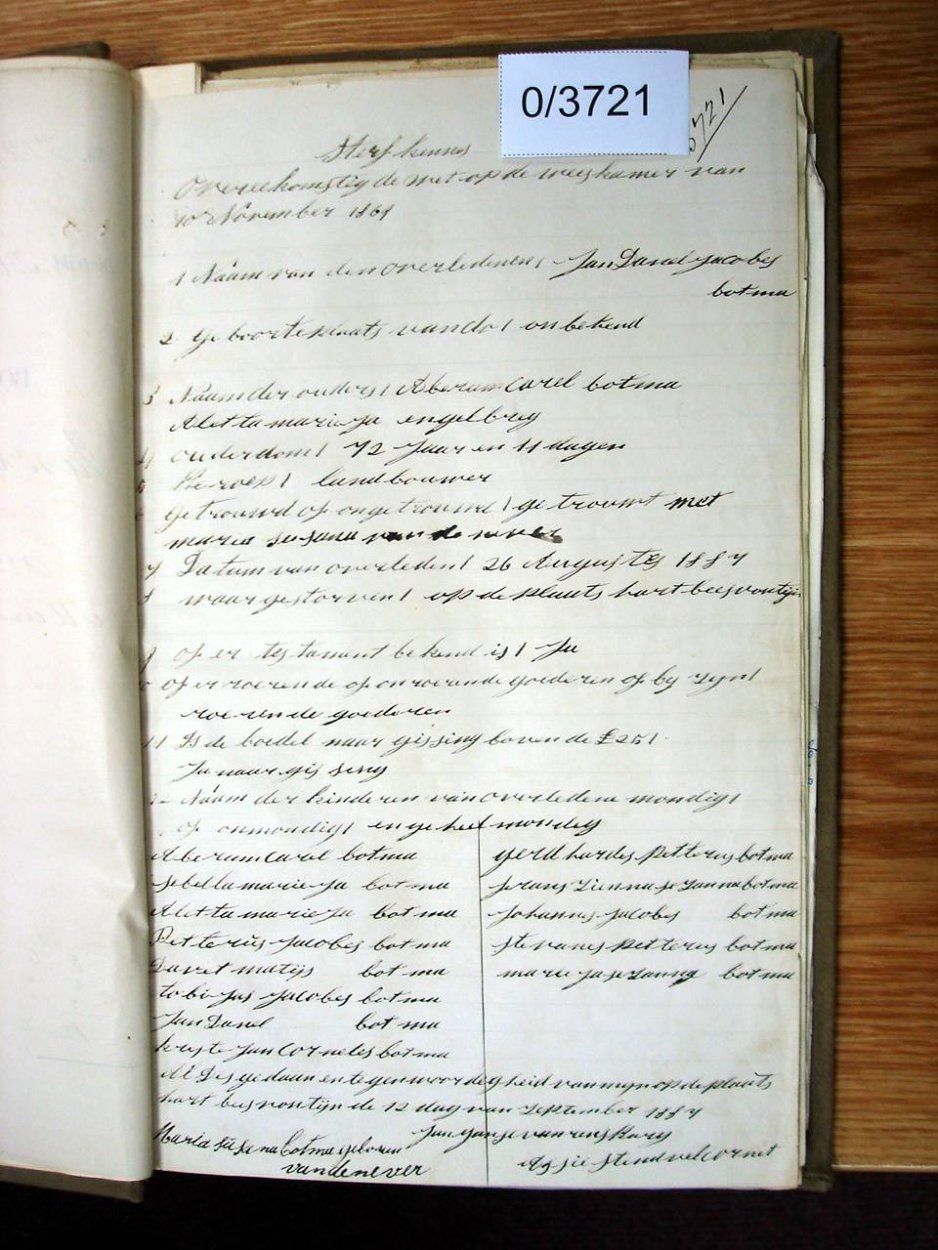 0/3721
3721
Sterf kennis
Overeekomstig de wet op de weeskamer van
10 November 1864
1 Naam van den overledenen Jan Danel Jacobes
botma
2 geboorteplaats van do onbekend
3 Naam der ouders Aberam Carel botma
Aletta marieja engelbreg
4 ouderdom 72 Jaar en 11 dagen
5 Beroep landbouwer
6 getrouwd of ongetrouwd getrouwt met
maria susana van de never
7 Datum van overleden 26 Augustes 1887
8 waar gestorven op de plaats hartbeesvontijn
9 of er testament bekend is Ja
10 of er roerende of onroerende goederen of by zyn
roerende goederen
11 Is de boedel naar gissing boven de £25
Ja naar gissing
12 Naam der kinderen van overledene mondig
of onmondig en geheel mondeg
Aberam Carel botma gerdhardes Petterus botma
sebella marieja botma frans Zienna se zanna botma
Aletta marieja botma Johannes Jacobes botma
Petterus Jacobes botma stevanes petterus botma
Davet matijs botma marieja se zanna botma
tobijas Jacobes botma
Jan Danel botma
kerste Jan Corneles botma
Al Des gedaan en tegenwoordegheid van myn op de plaats
hart beesvontijn de 12 dag van September 1887
Maria Susana botma geboren Jan Janse van rensburg
van de never Assistend velcornet